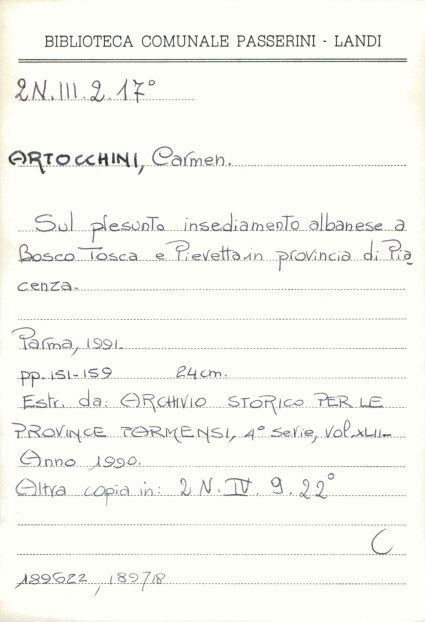 BIBLIOTECA COMUNALE PASSERINI - LANDI
2N.III.2.17°
ARTOCCHINI, Carmen.
Sul presunto insediamento albanese a
Bosco Tosca e Pievetta in provincia di Pia
cenza.
Parma, 1991.
pp. 151-159 24 cm.
Estr. da: ARCHIVIO STORICO PER LE
PROVINCE PARMENSI, 4° serie, vol. XLII-
Anno 1990.
Altra copia in: 2 N. IV. 9. 22°
C
189622, 189718